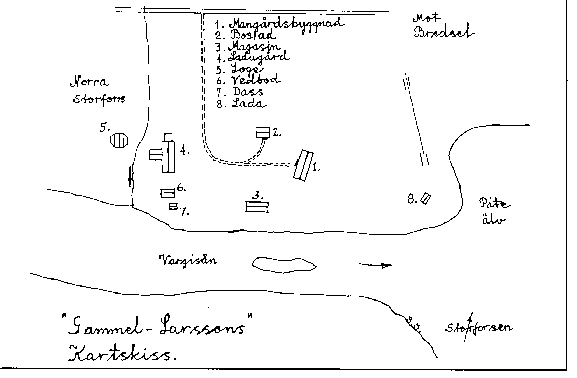 1. Mangårdsbyggnad
2. Bostad
3. Magasin
4. Ladugård
5. Loge
6. Vedbod
7. Dass
8. Lada
Mot
Bredsel
Norra
Storfors
5.
4.
2.
1.
6.
7.
3.
8.
Pite
älv
Vargisån
"Gammel-Larssons"
Kartskiss.
Storforsen